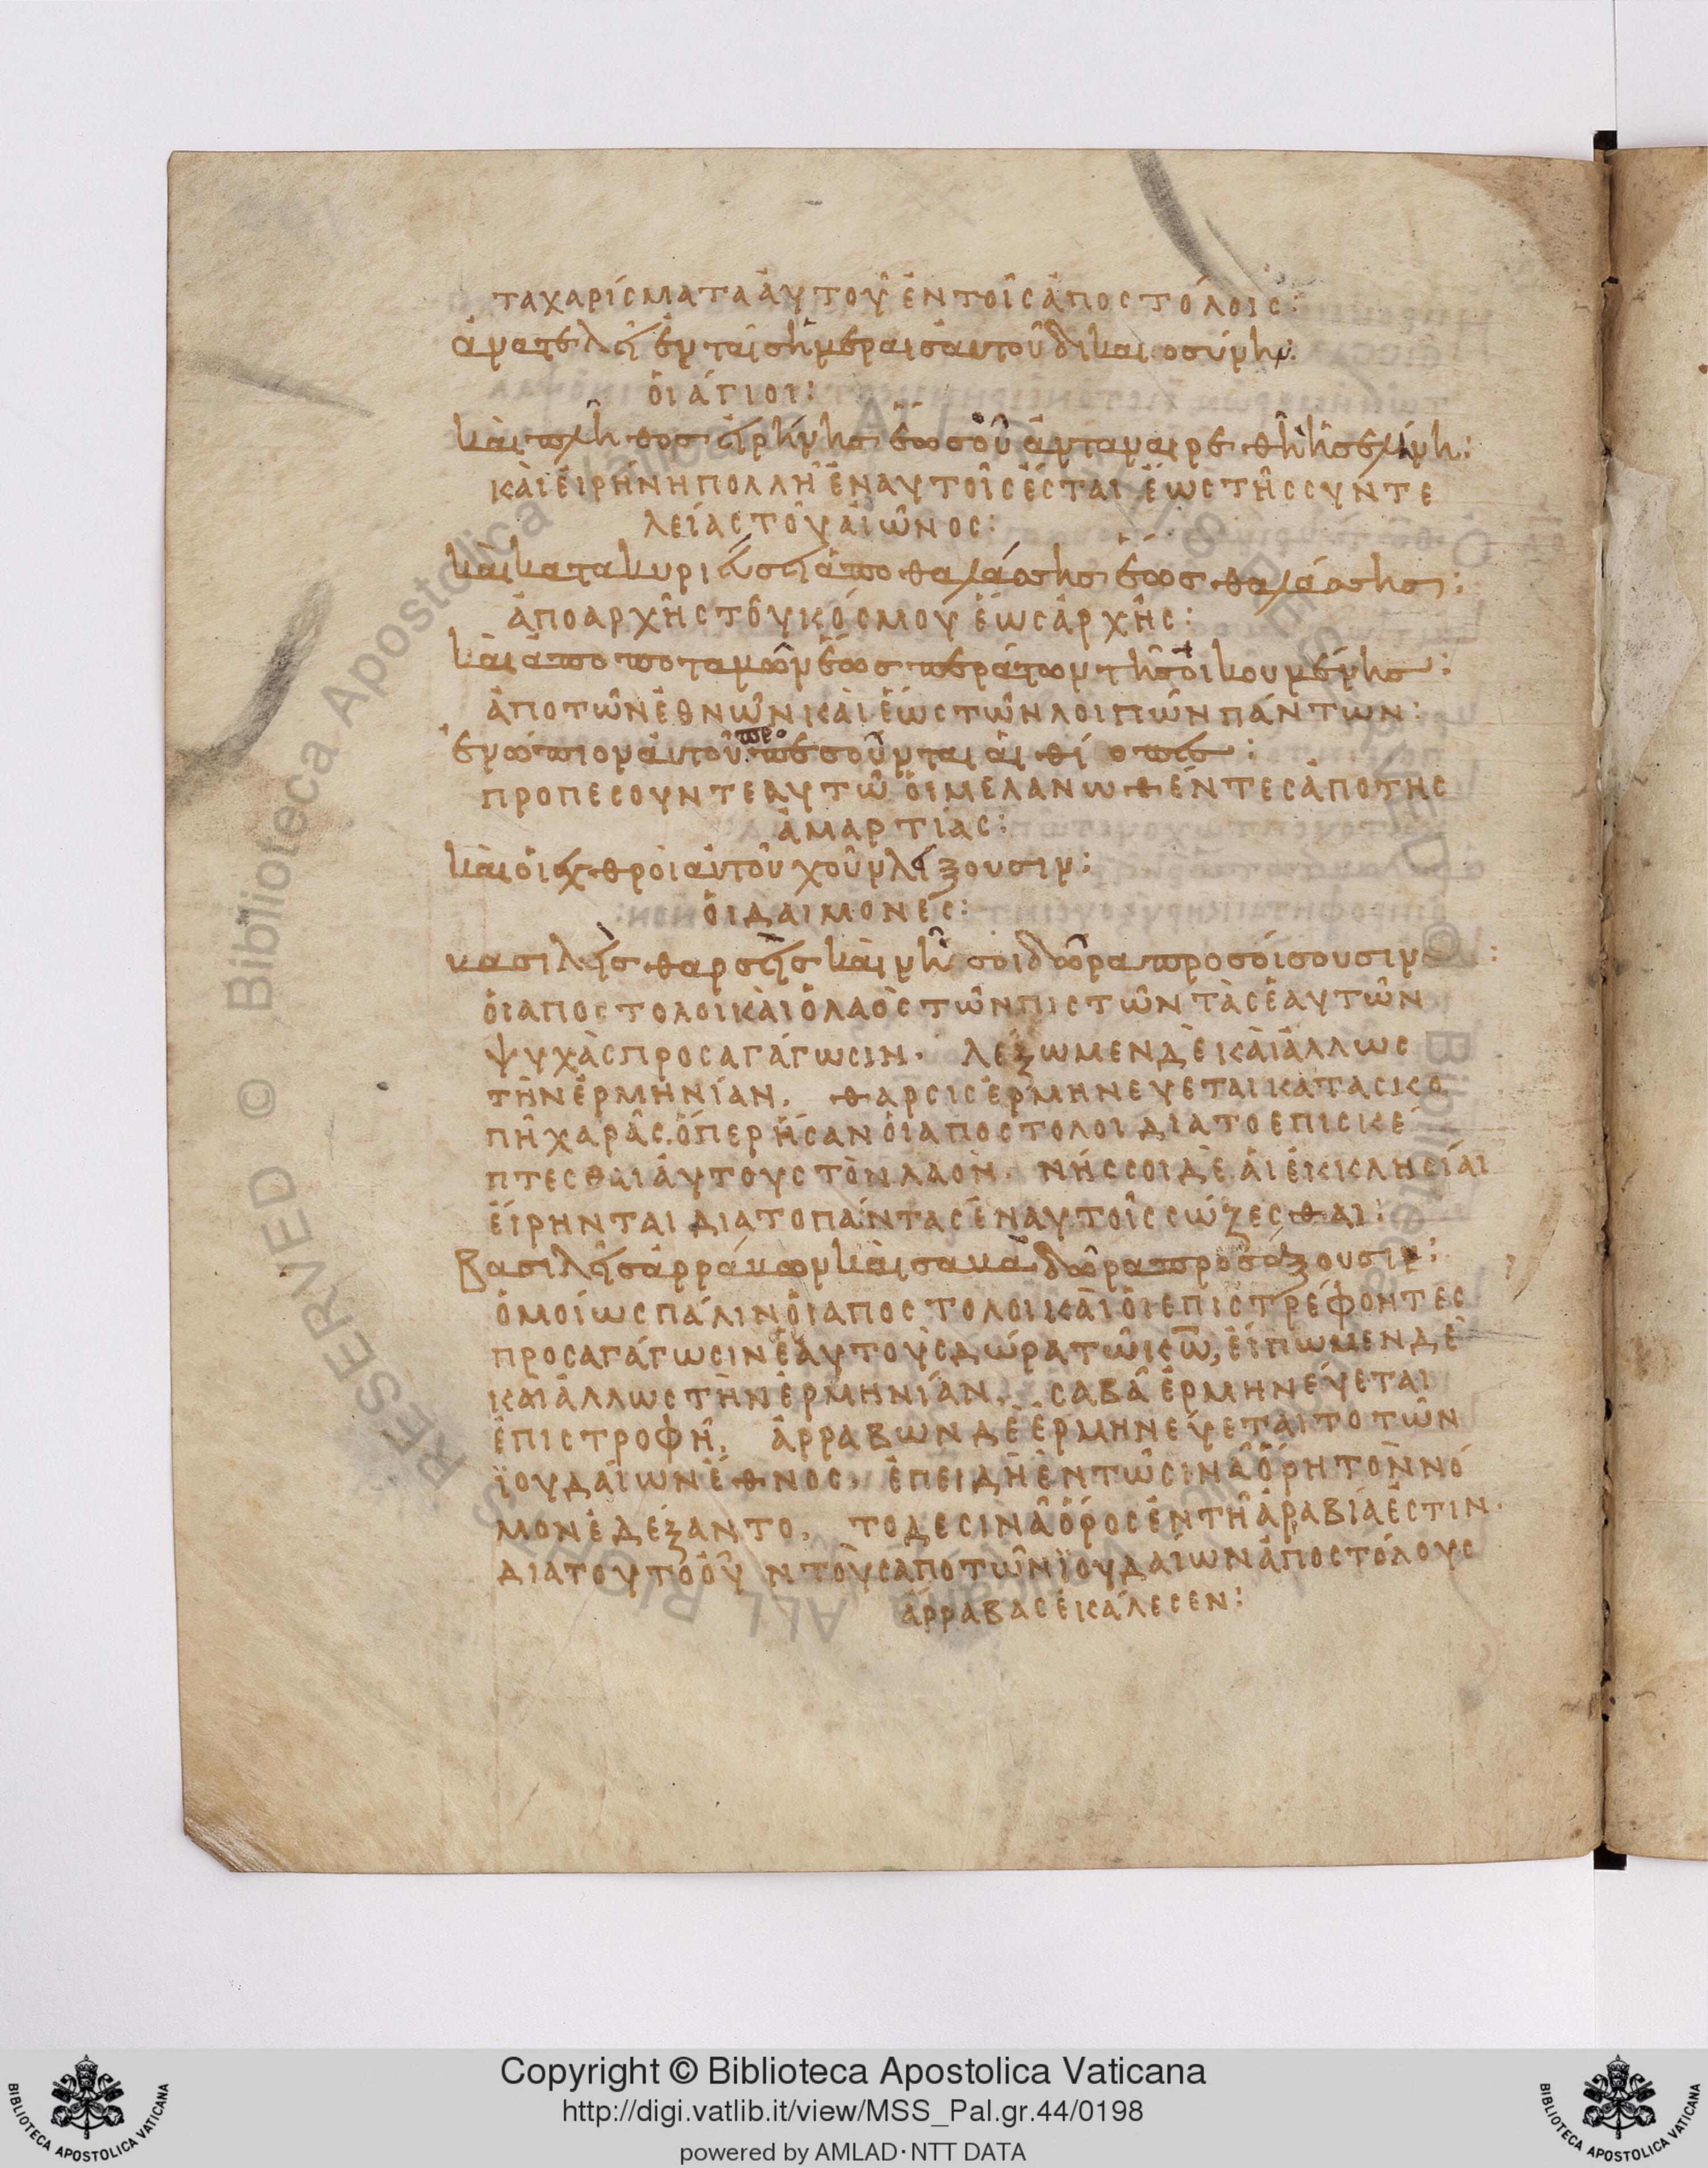 τα χαρίσματα ἀυτοῦ ἐν τοῖς ἀποστόλοις:
ἀνατελεῖ ἐν ταῖς ἡμέραις ἀυτοῦ δικαιοσύνη:
ὁι ἁγιοι:
κὰι πλῆθος εἰρήνης ἕως οὗ ἀνταναιρεθῆ ἡ σελήνη:
κὰι ἐιρήνη πολλὴ ἐν αυτοῖς ἐσται ἕως τῆς συντε
λείας τοῦ ἀιῶνος:
κὰι κατακυριεύσει ἀπο θαλάσσης ἕως θαλάσσης:
ἀπο αρχῆς τοῦ κόσμου ἕως ἀρχῆς:
κὰι ἀπο ποταμῶν ἕως περάτων τῆς οικουμένης:
ἀπο τῶν ἐθνῶν κὰι ἕως τῶν λοιπῶν πάντων:
ἐνώπιον ἀυτοῦ προπεσοῦνται ἀιθίοπες:
προπεσουντε αυτῶ ὁι μελανωθέντες ἀπο της
ἁμαρτίας:
κὰι ὁι ἐχθρὸι ἀυτοῦ χοῦν λείξουσιν:
ὁι δαιμονές:
βασιλεῖς θαρσεῖς κὰι νῆσοι δῶρα προσόισουσιν:
ὁι αποστολοι κὰι ὁ λαὸς τῶν πιστῶν τὰς ἑαυτῶν
ψυχὰς προσαγάγωσιν. λέξωμεν δὲ κὰι ἄλλως
τὴν ἑρμηνίαν. θαρσις ἑρμηνευεται κατασκο
πὴ χαρᾶς, ὁπερ ἦσαν ὁι αποστολοι δια το επισκέ
πτεσθαι ἀυτους τὸν λαον. νήσσοι δὲ ἁι ἐκκλησίαι
ἐίρηνται δια το πάντας ἐν αυτοῖς σώζεσθαι:
Βασιλεῖς ἀρράβων κὰι σαβᾶ δῶρα προσάξουσιν:
ὁμοίως πάλιν ὁι αποστολοι κὰι ὁι επιστρέφοντες
προσαγάγωσιν ἑαυτοὺς δώρα τῶ κω, ἐίπωμεν δὲ
και ἄλλως τὴν ἑρμηνίαν. σαβᾶ ἑρμηνεύεται
ἐπιστροφὴ, ἀρραβων δὲ ἑρμηνεύεται το τῶν
ϊουδάιων ἔθνος, ἐπειδὴ ἐν τῶ σινᾶ ὄρη τὸν νό
μον ἐδέξαντο, το δε σινᾶ ὄρος ἐν τῆ ἀραβία ἐστιν.
δια τουτο ὀῦν τὸυς απο τῶν ϊουδαίων ἀποστόλους
ἀρραβας ἐκάλεσεν:
Copyright © Biblioteca Apostolica Vaticana
http://digi.vatlib.it/view/MSS_Pal.gr.44/0198
powered by AMLAD·NTT DATA
BIBLIOTECA APOSTOLICA VATICANA
BIBLIOTECA APOSTOLICA VATICANA
© Biblioteca Apostolica Vaticana ALL RIGHTS RESERVED